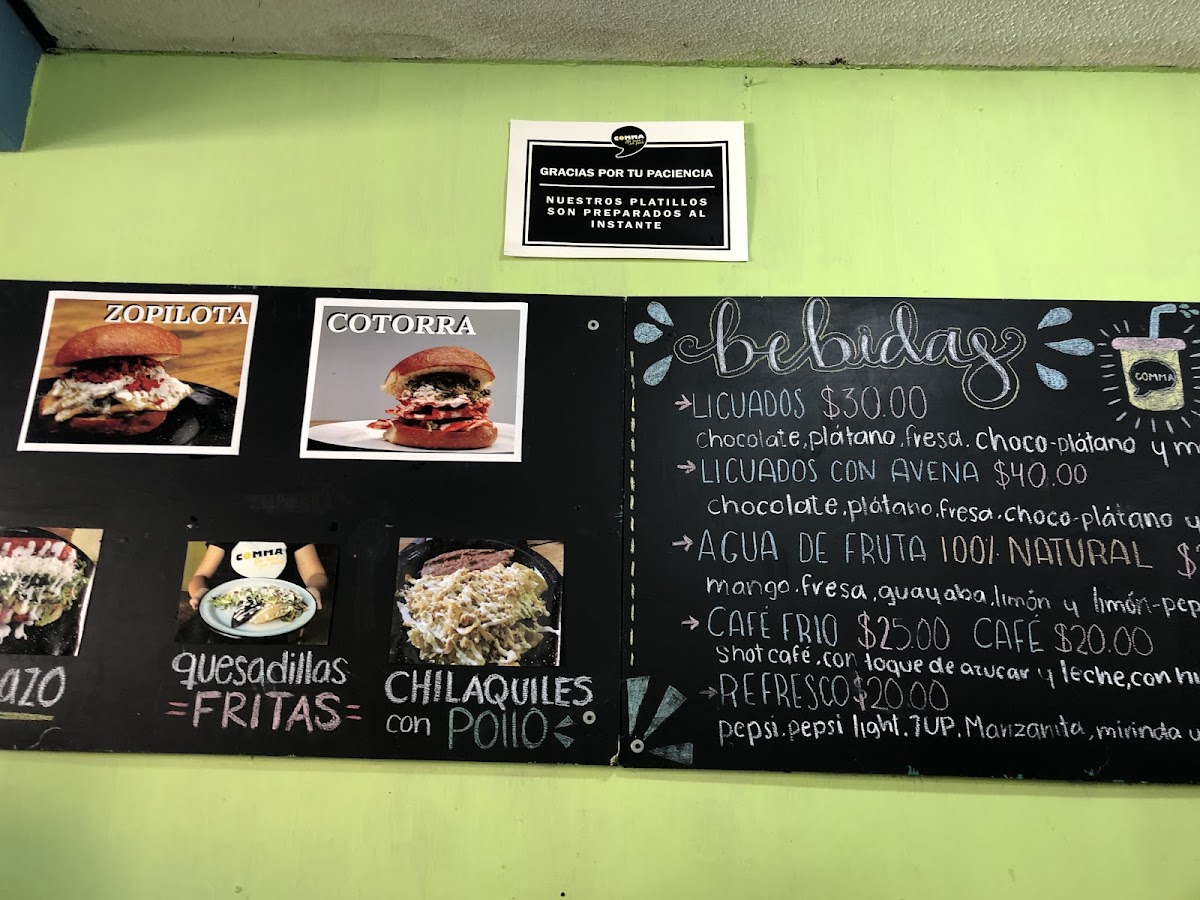 COMMA
GRACIAS POR TU PACIENCIA
NUESTROS PLATILLOS
SON PREPARADOS AL
INSTANTE
ZOPILOTA
COTORRA
COMMA
quesadillas
=FRITAS=
CHILAQUILES
con POLLO
bebidas
COMMA
→LICUADOS $30.00
chocolate, plátano, fresa. choco-plátano y m
→LICUADOS CON AVENA $40.00
chocolate, plátano, fresa. choco-plátano y
→AGUA DE FRUTA 100% NATURAL $
mango. fresa, guayaba, limón y limón-pep
→CAFÉ FRIO $25.00 CAFÉ $20.00
shot café, con toque de azucar y leche, con hi
→REFRESCO $20.00
pepsi. pepsi light. 7UP. Manzanita, mirinda